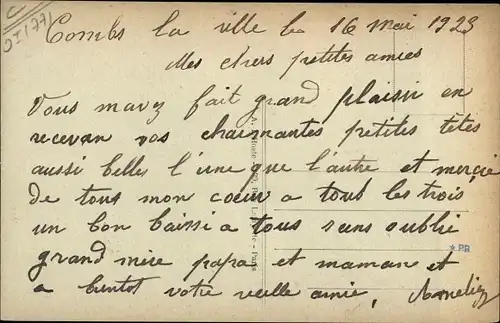 Combs la ville le 16 Mai 1923
Mes chers petites amies
Vous mavez fait grand plaisir en
recevan vos chaimantes petites têtes
aussi belles l'une que l'autre et mercie
de tous mon coeur a tous les trois
un bon baissi a tous sans oublié
grand mire papa et maman et
a bientot votre veille amie,
*PR